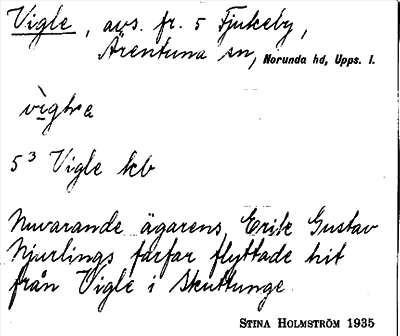 Vigle, avs. fr. 5 Fjukeby,
Ärentuna sn, Norunda hd, Upps. l.
5³ Vigle kb
Nuvarande ägarens, Erik Gustav
Njurlings farfar flyttade hit
från Vigle i Skuttunge.
STINA HOLMSTRÖM 1935